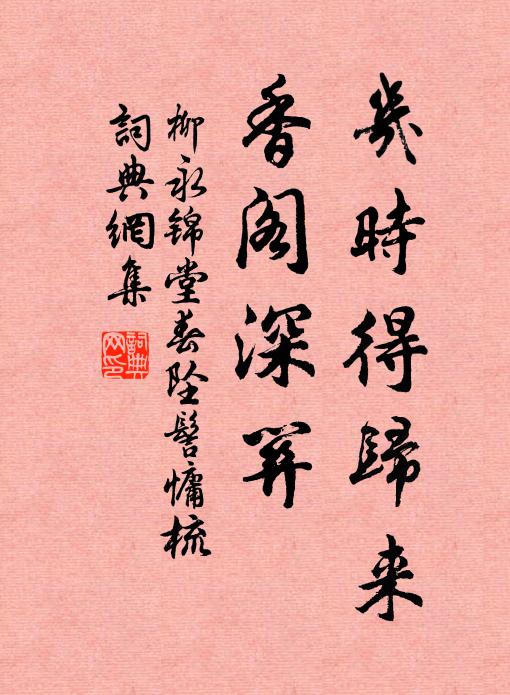 幾時得歸来
香閣深關
柳永錦堂春墜髻慵梳
詞典網集
詞典网印